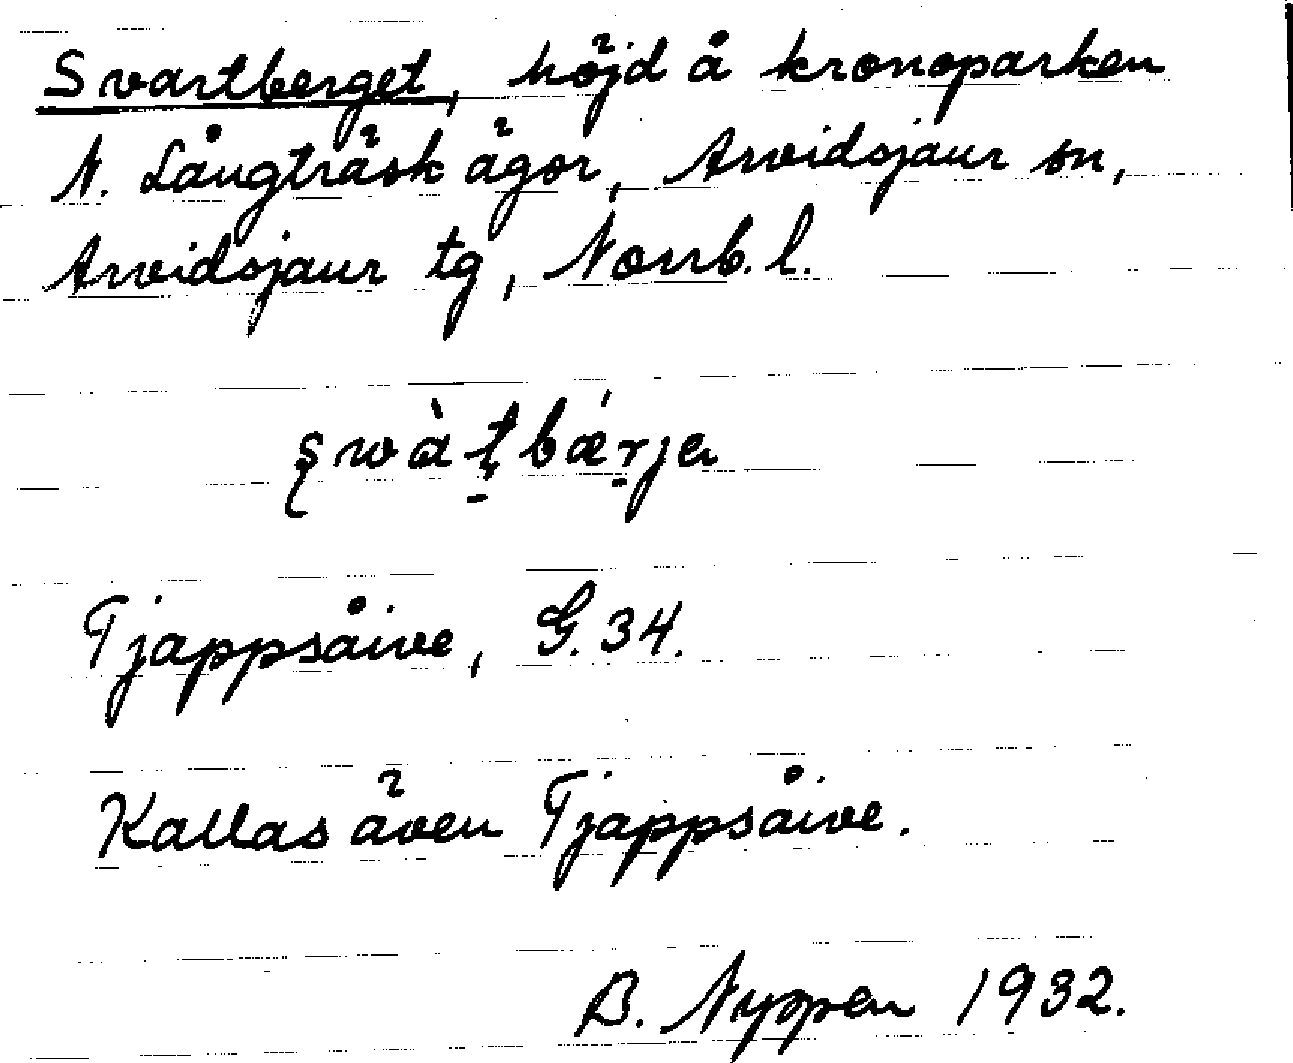 Svartberget, höjd å kronoparken
N. Långträsk ägor, Arvidsjaur sn,
Arvidsjaur tg, Norrb. l.
ʂwàʈbǽrja
Tjappsåive, G. 34.
Kallas även Tjappsåive.
B. Nyppen 1932.